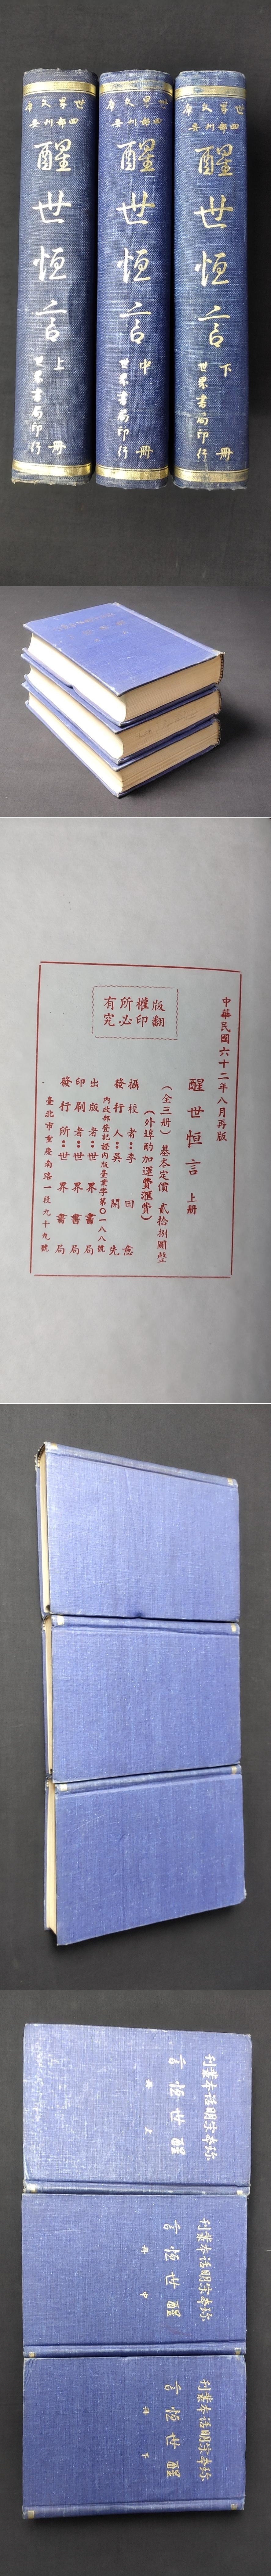 世界文庫
四部刊要
醒世恆言
上冊
世界書局印行
世界文庫
四部刊要
醒世恆言
中冊
世界書局印行
世界文庫
四部刊要
醒世恆言
下冊
世界書局印行
版權所有
翻印必究
中華民國六十二年八月再版
醒世恒言 上册
(全三冊) 基本定價 貳拾捌圓整
(外埠酌加運費滙費)
攝校者：李田意
發行人：吳開先
內政部登記證內版臺業字第〇一八八號
出版者：世界書局
印刷者：世界書局
發行所：世界書局
臺北市重慶南路一段九十九號
珍本宋明話本叢刊
醒世恆言
上冊
珍本宋明話本叢刊
醒世恆言
中冊
珍本宋明話本叢刊
醒世恆言
下冊